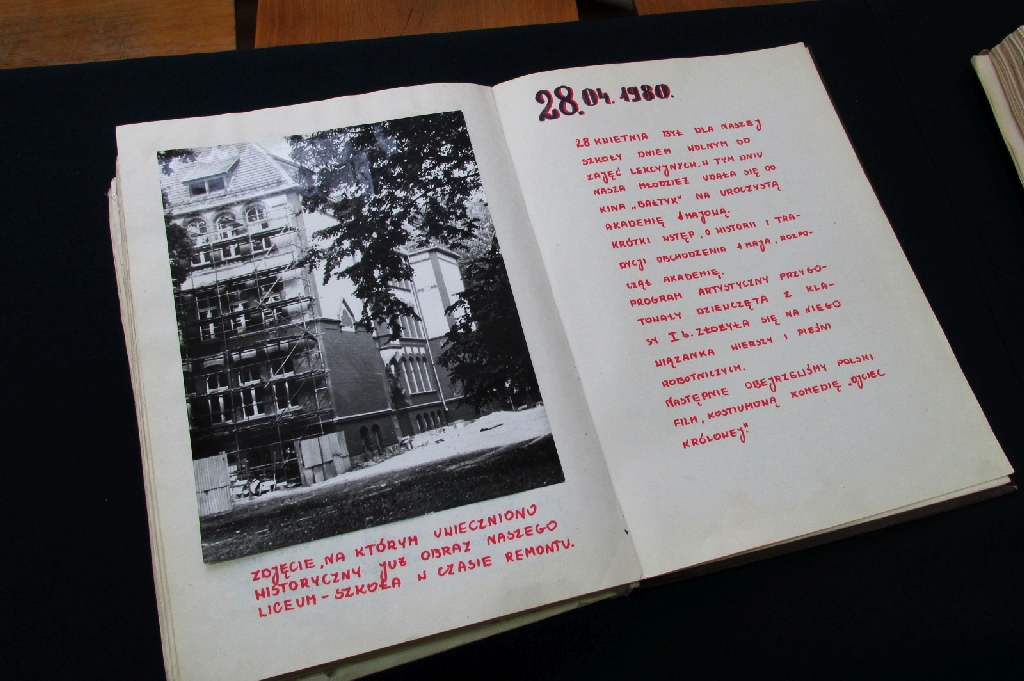 ZDJĘCIE, NA KTÓRYM UWIECZNIONO
HISTORYCZNY JUŻ OBRAZ NASZEGO
LICEUM - SZKOŁA W CZASIE REMONTU.
28.04.1980.
28 KWIETNIA BYŁ DLA NASZEJ
SZKOŁY DNIEM WOLNYM OD
ZAJĘĆ LEKCYJNYCH. W TYM DNIU
NASZA MŁODZIEŻ UDAŁA SIĘ DO
KINA „BAŁTYK" NA UROCZYSTĄ
AKADEMIĘ 1 MAJOWĄ.
KRÓTKI WSTĘP „O HISTORII I TRA-
DYCJI OBCHODZENIA 1 MAJA", ROZPO-
CZĄŁ AKADEMIĘ.
PROGRAM ARTYSTYCZNY PRZYGO-
TOWAŁY DZIEWCZĘTA Z KLA-
SY I b. ZŁOŻYŁA SIĘ NA NIEGO
WIĄZANKA WIERSZY I PIEŚNI
ROBOTNICZYCH.
NASTĘPNIE OBEJRZELIŚMY POLSKI
FILM, KOSTIUMOWĄ KOMEDIĘ „OJCIEC
KRÓLOWEJ".